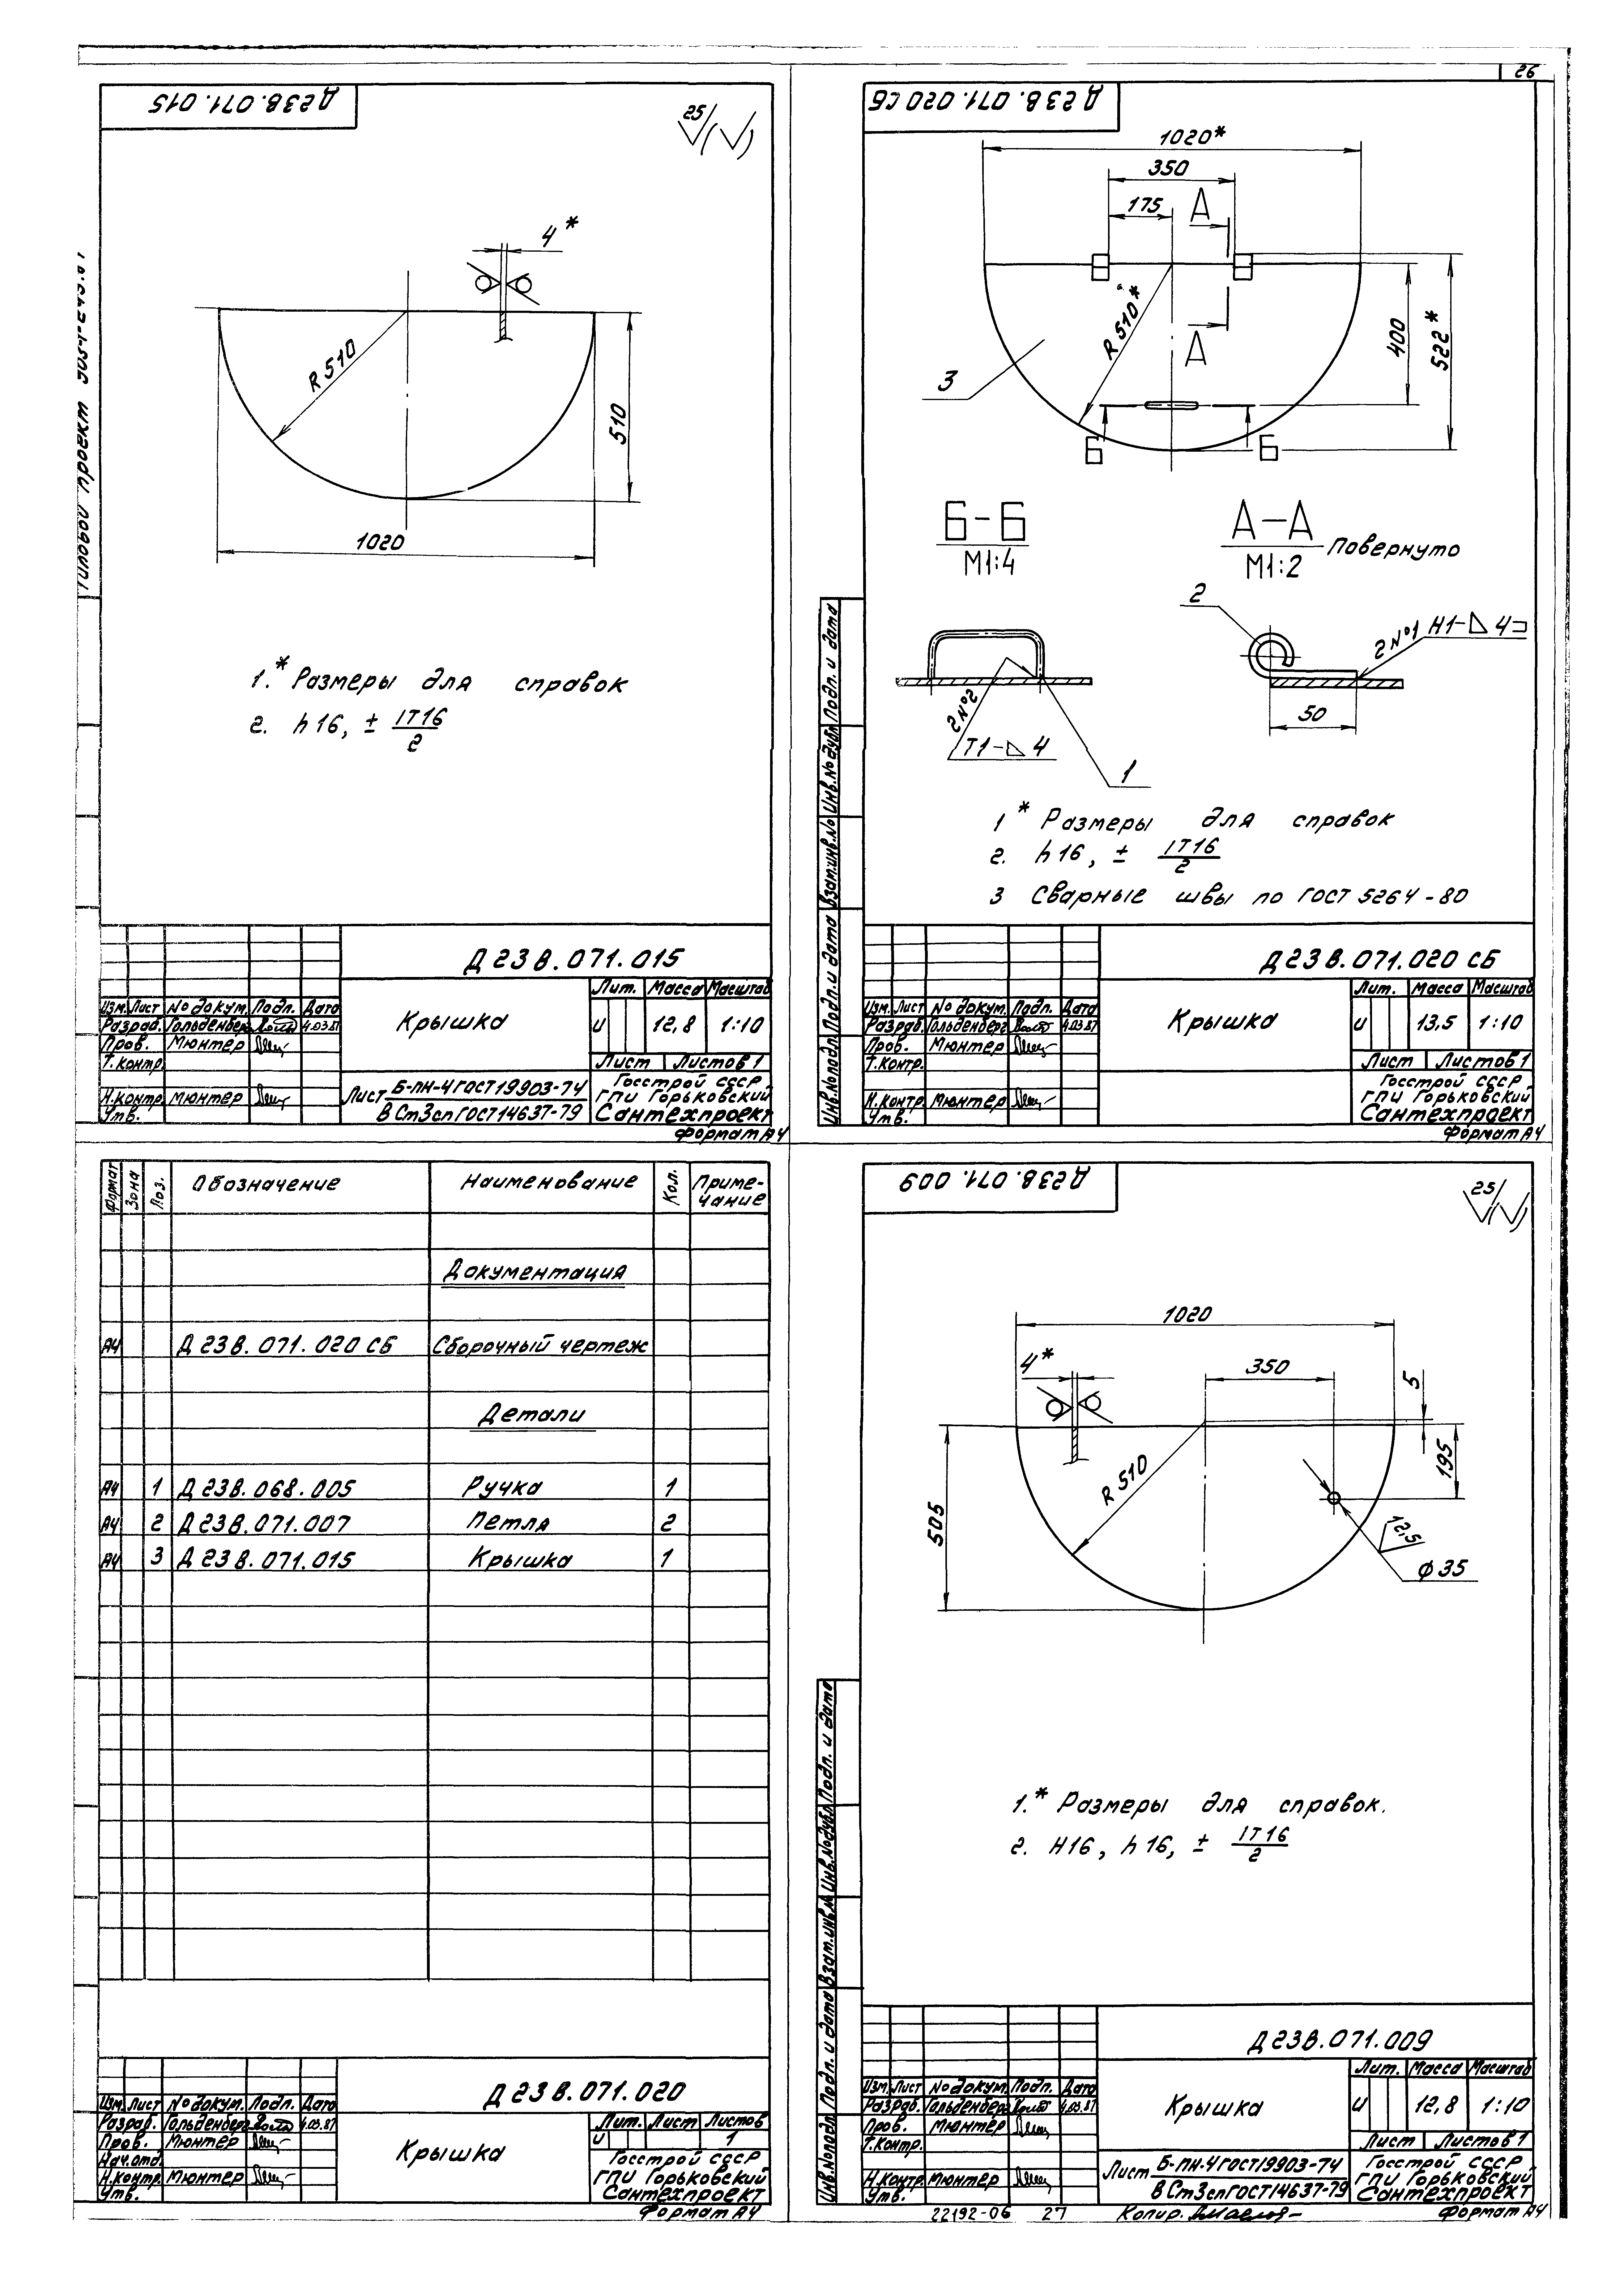 26
Д 23 В. 071. 015
25
4*
R 510
510
1020
1.* Размеры для справок
2. h 16, ± IT16/2
Типовой проект
Д 23 В. 071. 015
Крышка
Лит. Масса Масштаб
и 12,8 1:10
Лист Листов 1
Изм. Лист № докум. Подп. Дата
Разраб. Гольденберг 4.03.87
Пров. Мюнтер
Т.контр.
Н.контр. Мюнтер
Утв.
Лист Б-ПН-4 ГОСТ 19903-74
В Ст3сп ГОСТ 14637-79
Госстрой СССР
ГПИ Горьковский
Сантехпроект
Формат А4
Д 23 В. 071. 020 СБ
1020*
350
175
А
R 510*
400
522*
3
А
Б
Б
Б-Б
М1:4
А-А
М1:2
Повернуто
2
2 №1 Н1-◺ 4⊐
50
2 №2
Т1-◺ 4
1
1 * Размеры для справок
2. h 16, ± IT16/2
3 Сварные швы по ГОСТ 5264-80
Подп. и дата
Инв.№ дубл.
Взам.инв.№
Подп. и дата
Инв.№ подл.
Д 23 В. 071. 020 СБ
Крышка
Лит. Масса Масштаб
и 13,5 1:10
Лист Листов 1
Изм. Лист № докум. Подп. Дата
Разраб. Гольденберг 4.03.87
Пров. Мюнтер
Т.контр.
Н.контр. Мюнтер
Утв.
Госстрой СССР
ГПИ Горьковский
Сантехпроект
Формат А4
Формат Зона Поз. Обозначение Наименование Кол. Приме-
чание
Документация
А4 Д 23 В. 071. 020 СБ Сборочный чертеж
Детали
А4 1 Д 23 В. 068. 005 Ручка 1
А4 2 Д 23 В. 071. 007 Петля 2
А4 3 Д 23 В. 071. 015 Крышка 1
Д 23 В. 071. 020
Крышка
Изм. Лист № докум. Подп. Дата
Разраб. Гольденберг 4.03.87
Пров. Мюнтер
Нач.отд.
Н.контр. Мюнтер
Утв.
Лит. Лист Листов
и 1
Госстрой СССР
ГПИ Горьковский
Сантехпроект
Формат А4
Д 23 В. 071. 009
25
1020
4*
350
5
195
R 510
505
12,5
Ф 35
1.* Размеры для справок.
2. Н16, h 16, ± IT16/2
Подп. и дата
Инв.№ дубл.
Взам.инв.№
Подп. и дата
Инв.№ подл.
Д 23 В. 071. 009
Крышка
Лит. Масса Масштаб
и 12,8 1:10
Лист Листов 1
Изм. Лист № докум. Подп. Дата
Разраб. Гольденберг 4.03.87
Пров. Мюнтер
Т.контр.
Н.контр. Мюнтер
Утв.
Лист Б-ПН-4 ГОСТ 19903-74
В Ст3сп ГОСТ 14637-79
Госстрой СССР
ГПИ Горьковский
Сантехпроект
22192-06 27 Копир. Формат А4